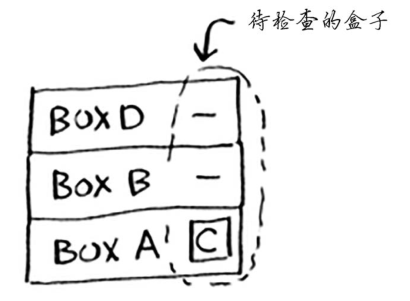 待检查的盒子
BOX D –
BOX B –
BOX A C